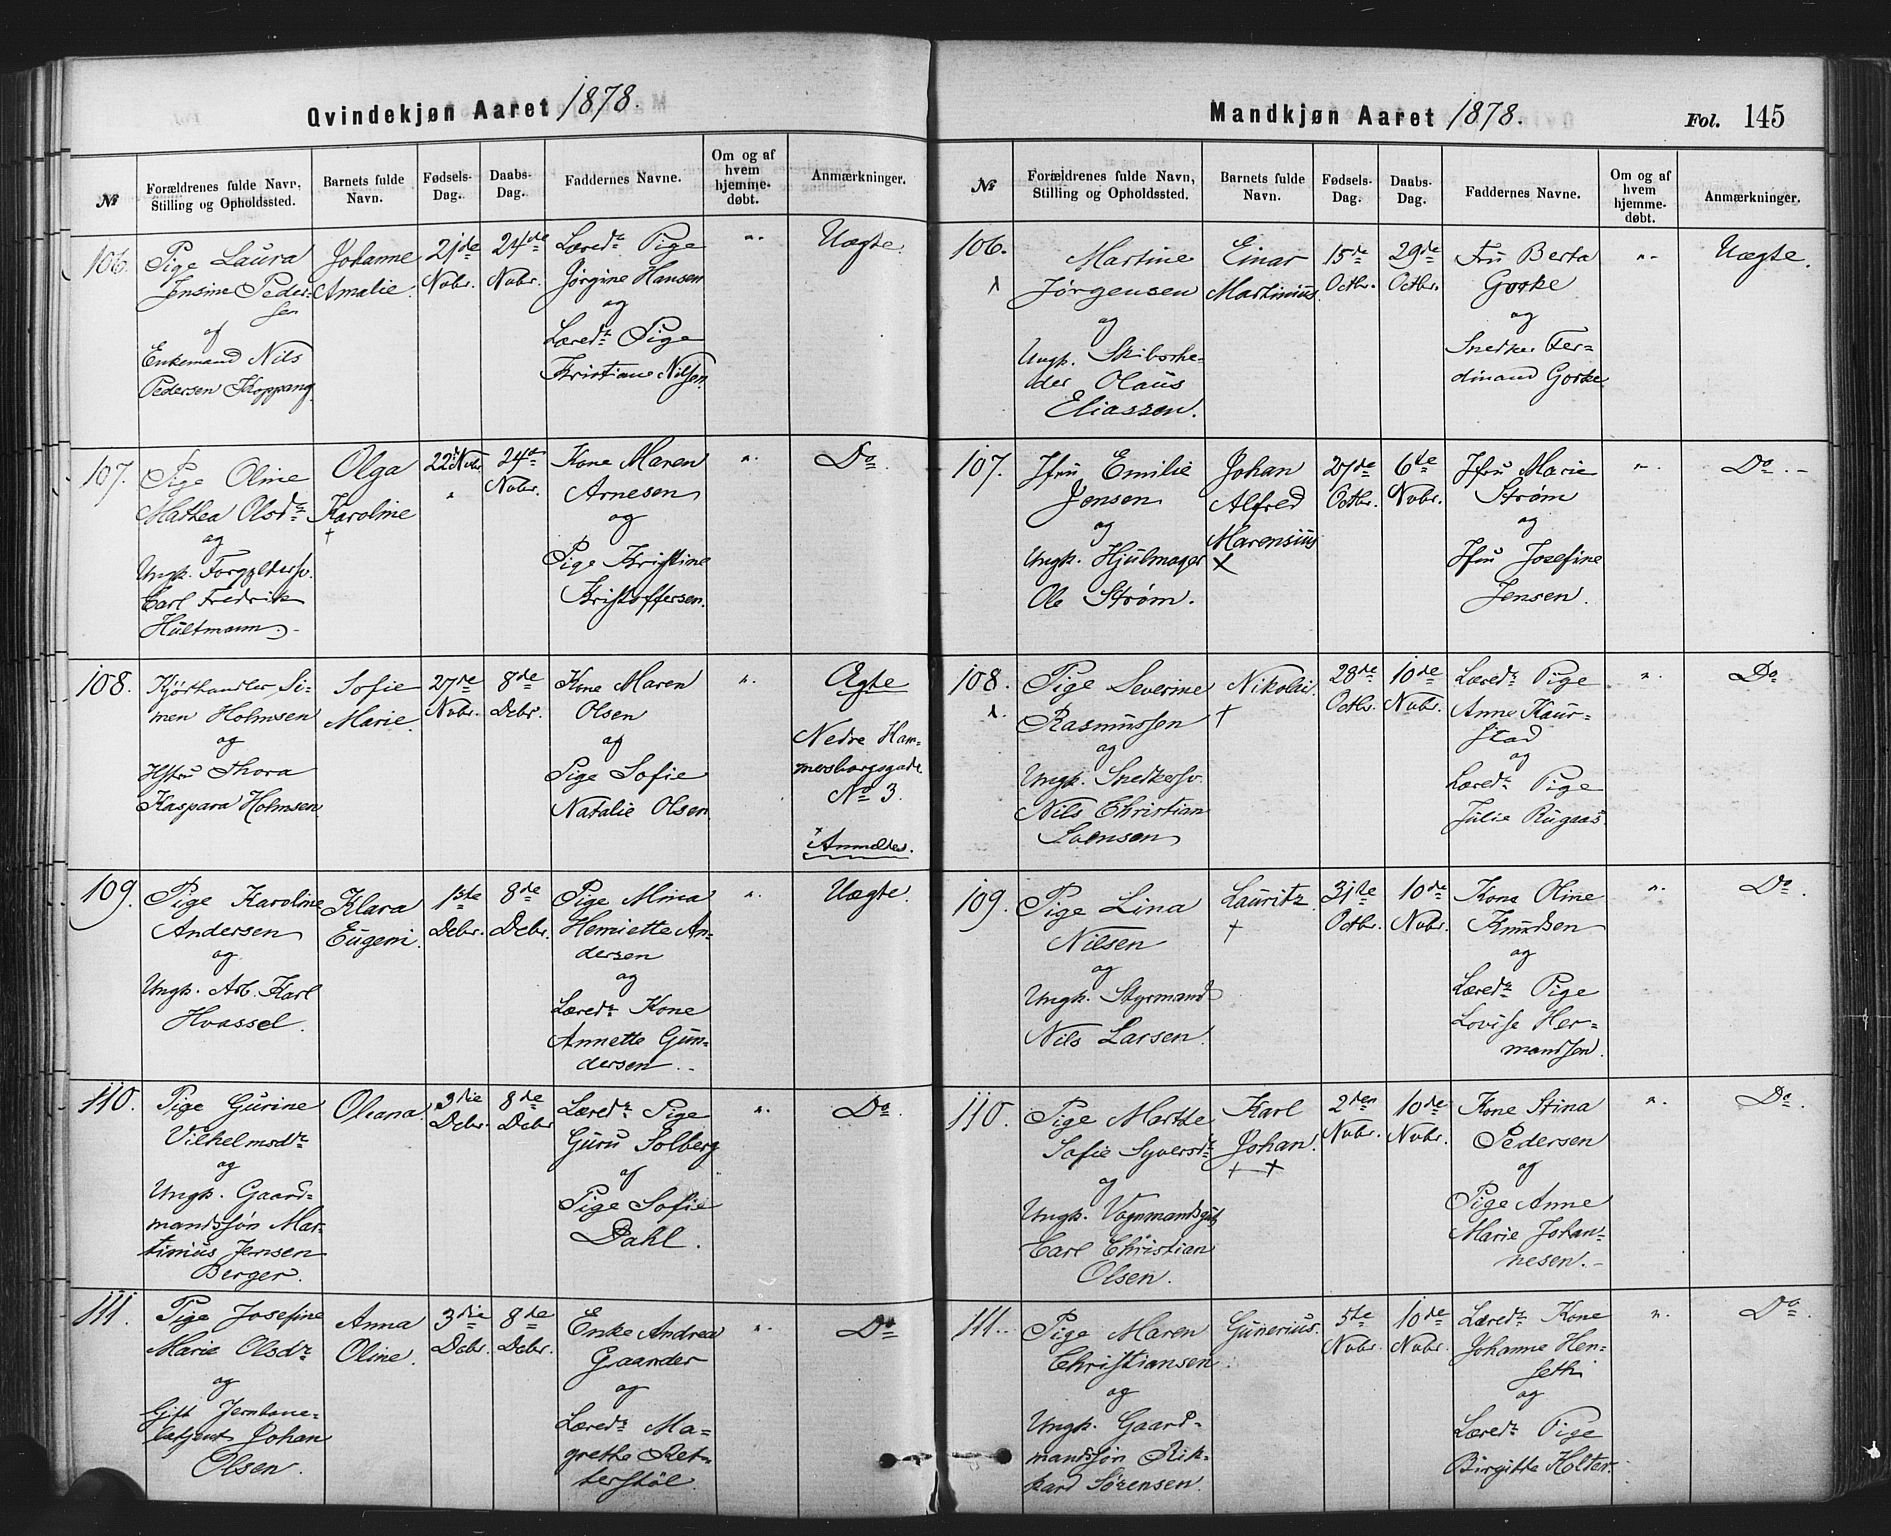 Qvindekjøn Aaret 1878.
№
Forældrenes fulde Navn,
Stilling og Opholdssted.
Barnets fulde
Navn.
Fødsels-
Dag.
Daabs-
Dag.
Faddernes Navne.
Om og af
hvem
hjemme-
døbt.
Anmærkninger.
106.
Pige Laura
Jensine Peder-
sen
af
Enkemand Nils
Pedersen Koppang.
Johanne
Amalie.
21de
Novbr.
24de
Novbr.
Læred. Pige
Jørgine Hansen
og
Læred. Pige
Kristiane Nilsen
"
Uægte.
107.
Pige Oline
Mathea Olsdr
og
Ungk.
Carl Fredrik
Hultmann.
Olga
Karoline
+
22d Novbr.
"
24de
Novbr.
Kone Maren
Arnesen
og
Pige Kristine
Kristoffersen.
"
Do
108.
Kjøthandler Si-
men Holmsen
og
Hstru Thora
Kaspara Holmsen
Sofie
Marie.
27de
Novbr.
8de
Debr.
Kone Maren
Olsen
af
Pige Sofie
Natalie Olsen
"
Ægte
Nedre Ham-
mersborgsgade
No 3.
Anmeldes.
109.
Pige Karoline
Andersen
og
Ungk. Arb. Karl
Hvassel.
Klara
Eugeni.
1ste
Debr.
8de
Debr.
Pige Mina
Henriette An-
dersen
og
Læred. Kone
Annette Gun-
dersen.
"
Uægte.
110.
Pige Gurine
Vilhelmsdr
og
Ungk. Gaard-
mandssøn Mar-
tinius Jensen
Berger.
Oleana
3die
Debr.
8de
Debr
Læred. Pige
Guru Solberg
af
Pige Sofie
Dahl.
"
Do
111.
Pige Josefine
Marie Olsdr
og
Gift Jernbane-
betjent Johan
Olsen.
Anna
Oline.
3die
Debr.
8de
Debr.
Enke Andrea
Gaarder
og
Læred. Ma-
grethe Ret-
terstøl.
"
Do
Mandkjøn Aaret 1878.
Fol. 145
№
Forældrenes fulde Navn,
Stilling og Opholdssted.
Barnets fulde
Navn.
Fødsels-
Dag.
Daabs-
Dag.
Faddernes Navne.
Om og af
hvem
hjemme-
døbt.
Anmærkninger.
106.
Martine
Jørgensen
og
Ungk.
Olaus
Eliassen.
Einar
Martinius.
15de
Octbr.
29de
Octbr.
Fru Berta
Goske
og
Snedker Fer-
dinand Goske
"
Uægte.
107.
Jfru Emilie
Jensen
og
Ungk. Hjulmager
Ole Strøm.
Johan
Alfred
Marensius
+
27de
Octbr.
6te
Novbr.
Jfru Marie
Strøm
og
Jfru Josefine
Jensen.
"
Do.
108.
Pige Severine
Rasmussen
og
Ungk. Snedkersv.
Nils Christian
Svensen
Nikolai.
+
28de
Octbr.
10de
Novbr.
Læred. Pige
Anne Kaur-
stad
og
Læred. Pige
Julie Rugaas.
"
Do
109.
Pige Lina
Nilsen
og
Ungk. Styrmand
Nils Larsen.
Lauritz.
+
31te
Octbr.
10de
Novbr.
Kone Oline
Knudsen
og
Læred. Pige
Lovise Her-
mandsen.
"
Do.
110.
Pige Marthe
Sofie Syversdr
og
Ungk. Vognmandsgut
Carl Christian
Olsen.
Karl
Johan.
+ +
2den
Novbr.
10de
Novbr.
Kone Stina
Pedersen
af
Pige Anne
Marie Johan-
nesen.
"
Do.
111.
Pige Maren
Christiansen
og
Ungk. Gaard-
mandssøn Rik-
kard Sørensen.
Gunerius.
5te
Novbr.
10de
Novbr.
Læred. Kone
Johanne Hen-
seth
og
Læred. Pige
Birgitte Holter.
"
Do